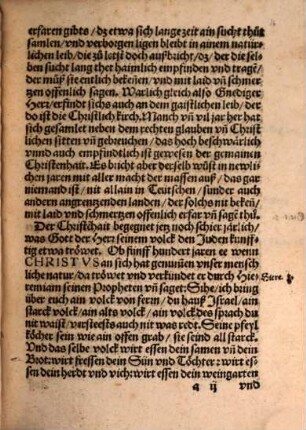 erfaren gibts / dz etwa sich lange zeit ain sucht thůt
samlen / vnd verborgen ligen bleibt in ainem natur⸗
lichen leib / die zů letst doch außbricht / dz / der die sel⸗
ben sucht lang thet haimlich empfinden vnd tragē /
der můß sie entlich bekeñen / vnd mit laid vñ schmer⸗
tzen offenlich sagen. Warlich gleich also Gnediger
Herr / erfindt sichs auch an dem gaistlichen leib / der
do ist die Christlich kirch. Manch vñ vil jar her hat
sich gesamlet neben dem rechten glauben vñ Christ
lichen sitten vñ gebreuchen / das hoch beschwärlich
vnnd auch empfindtlich ist gewesen der gemainen
Christenhait. Es bricht aber derselb wůst in newlich⸗
en jaren mit aller macht der massen auß / das gar
niemand ist / nit allain in Teutschen / sunder auch
andern angrentzenden landen / der solchs nit bekeñ /
mit laid vnd schmertzen offenlich erfar vñ sagē thů.
Der Christēhait begegnet jetz noch schier järlich /
was Gott der Herr seinem volck den Juden kunff⸗
tig etwa tröwet. Ob fünff hundert jaren ee wenn
CHRISTVS an sich hat genuñen vnser mensch
liche natur / da tröwet vnd verkundet er durch Hye⸗ Hiere. 5.
remiam seinen Propheten vñ saget: Sihe / ich bring
über euch ain volck von ferrn / du hauß Israel / ain
starck volck / ain alts volck / ain volck des sprach du
nit waist / versteests auch nit was redt. Seine pfeyl
köcher sein wie ain offen grab / sie seind all starck.
Vnd das selbe volck wirt essen dein samen vñ dein
Brot: wirt fressen dein Sün vnd Töchter: wirt es⸗
sen dein herdt vnd vich: wirt essen dein weingarten
a ij vnd